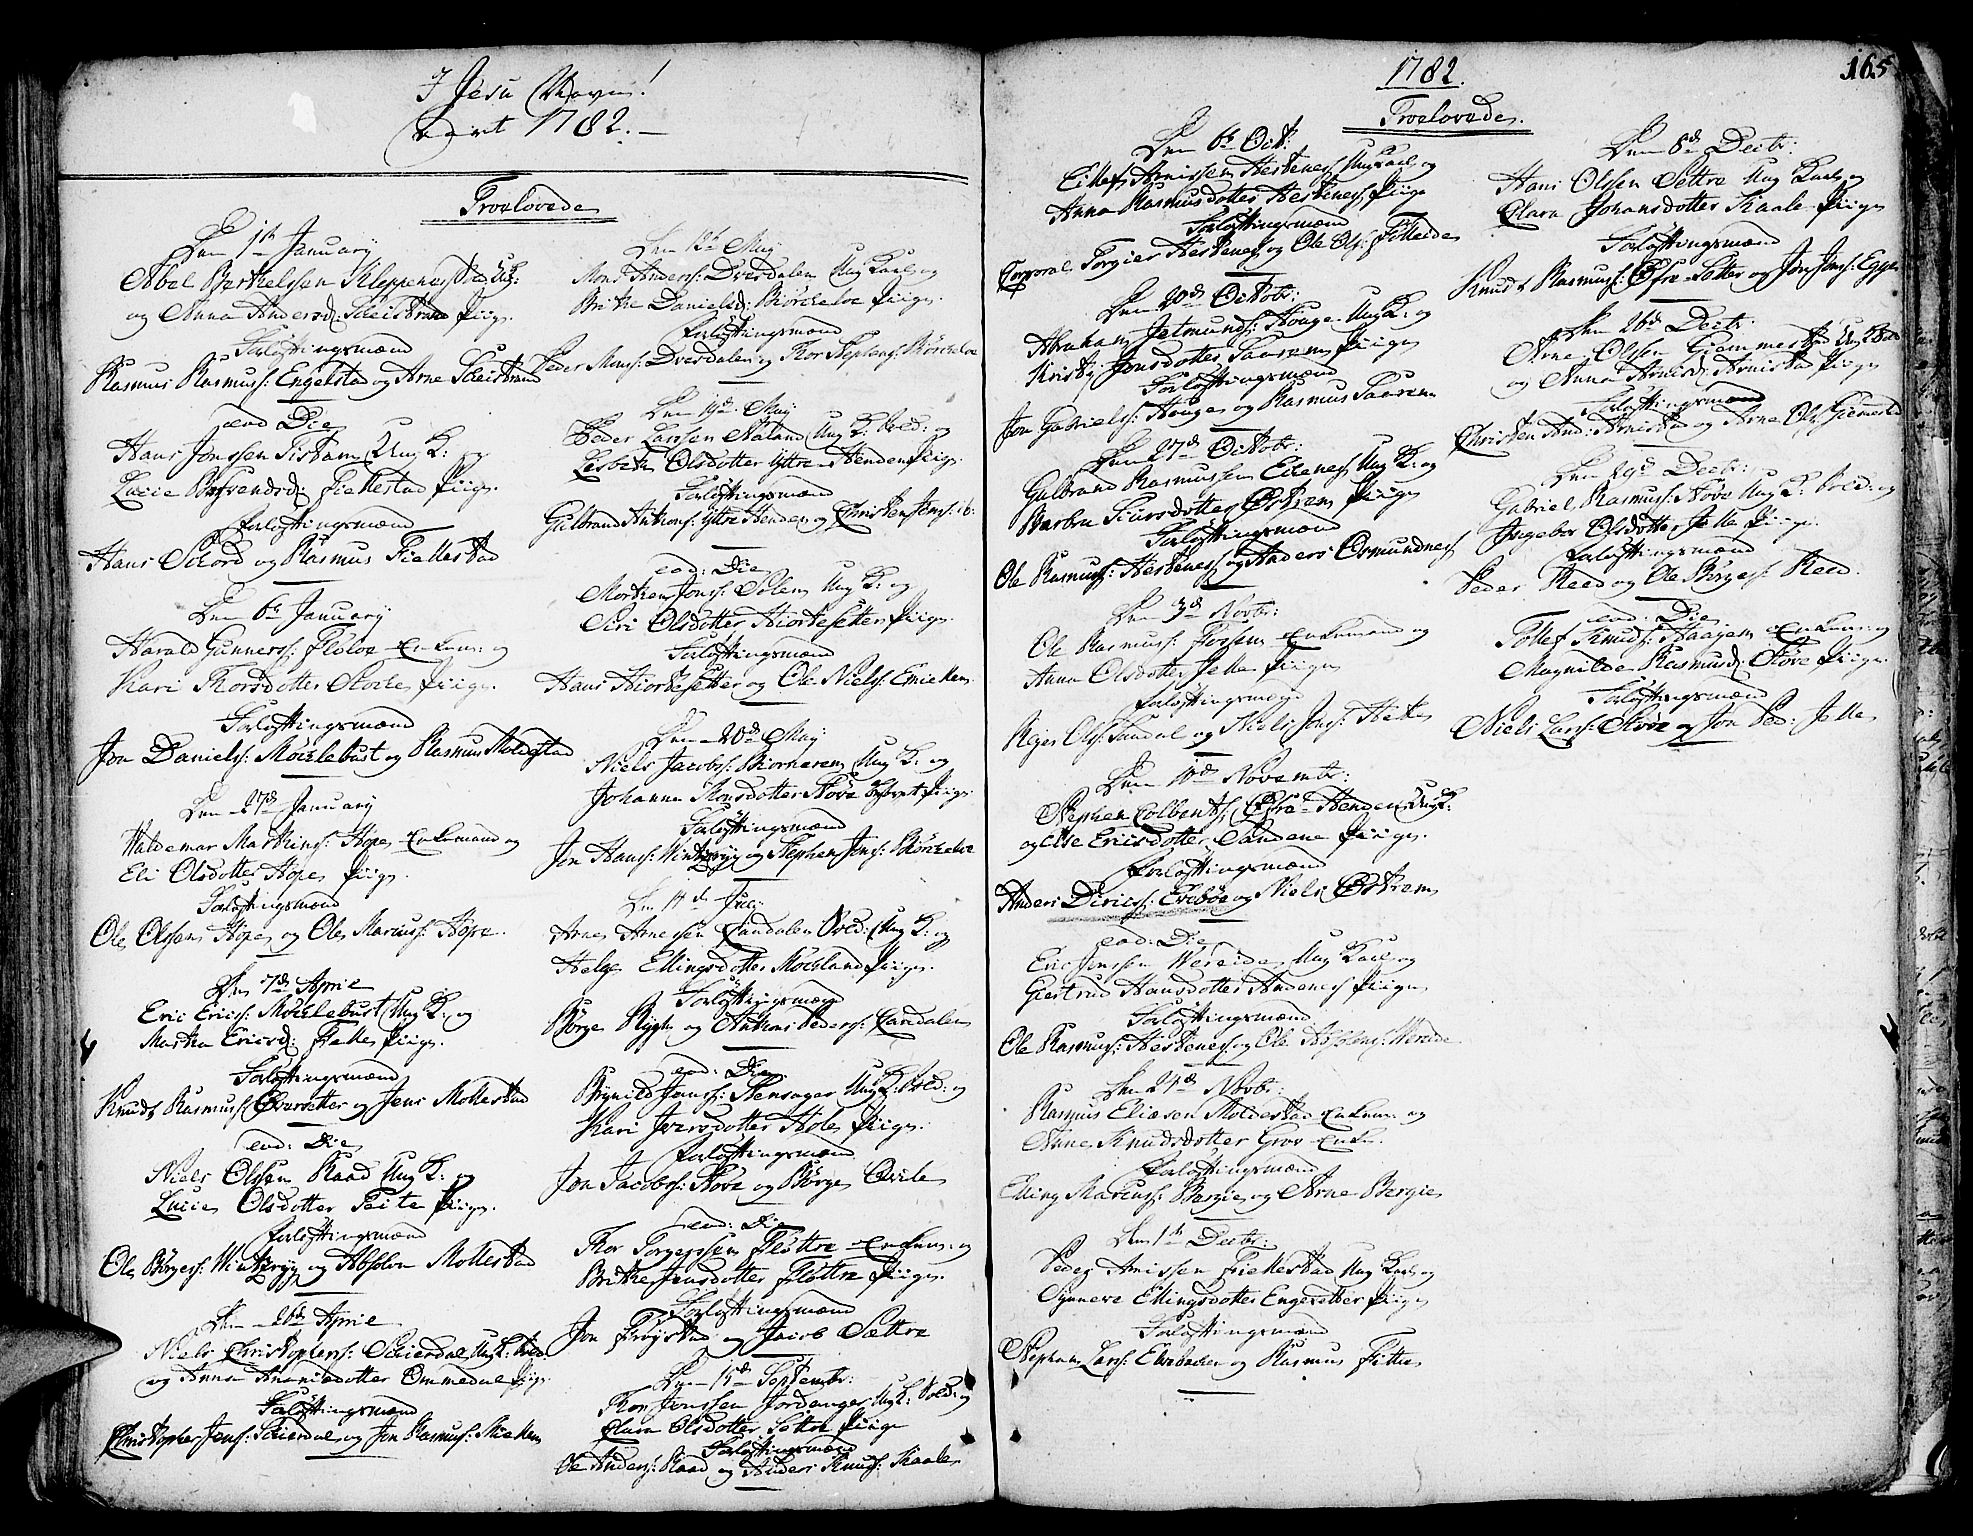 I Jesu Navn!
1782.
Troelovede
Den 1te January
Abel Berthelsen Kleppenestad Ung K:
og Anna Andersd: Pige.
Forløftningsmænd
Rasmus Rasmuss: Engelstad og Arne
eod Die
Hans Jonssen Sistam Ung K: og
Lucie Fiellestad Pige.
Forløftningsmænd
Hans Schord og Rasmus Fiellestad
Den 6te January
Harald Gunnerss: Fløtre Enkem: og
Kari Thorsdotter Pige.
Forløftningsmænd
Jon Daniels: Mörklebust og Rasmus Moldestad
Den 27de January
Waldemar Marthins: Hope Enkemand og
Eli Olsdotter Hope Pige.
Forløftningsmænd
Ole Olssen Hope og Ole Mariuss: Hope.
Den 7de Aprile
Eric Erics: Möcklebust Ung K: og
Martha Ericsd: Felle Pige.
Forløftningsmænd
Knud Rasmuss: og Jens Mollestad
eod: Die
Niels Olssen Raad Ung K: og
Lucie Olsdotter Teite Pige.
Forløftningsmænd
Ole Börgess: og Absolon Mollestad
Den 26de Aprile
Niels Christophers: Ung K: Sold:
og Anna Ananiasdotter Ommedal Pige.
Forløftningsmænd
Christopher Jens: og Jon Rasmus:
Den 12te May
Mons Anderss: Dvergdalen Ung Karl og
Brithe Danielsd: Börckeloe Pige.
Forløftningsmænd
Peder Monss: Dvergdalen og Thor Stephens: Börckeloe
Den 19de May
Peder Larssen Aaland Ung K: Sold: og
Lisbeth Olsdotter Yttre-Henden Pige.
Forløftningsmænd
Gulbrand Anthons: Yttre Henden og Christen Jens: ib:
eod: Die
Morthen Jons: Solem Ung K: og
Siri Olsdotter Hiortesetter Pige.
Forløftningsmænd
Hans Hiortesetter og Ole Niels:
Den 20de May
Niels Jacobs: Ung K: og
Johanna Monsdotter Pige.
Forløftningsmænd
Jon Hans: og Stephen Jens: Börckeloe
Den 14de July
Arne Arnesen Sandalen Sold: Ung K: og
Helge Ellingsdotter Möckland Pige.
Forløftningsmænd
Börge Rygh og Anthoni Pederss: Sandalen
eod: Die
Brynild Jonss: Stensager Ung K: Sold: og
Kari Iversdotter Hole Pige.
Forløftningsmænd
Jon Jacobss: Støve og Börge
eod: Die
Thor Torgerssen Fløttre Enkem: og
Brithe Jensdotter Fløttre Pige.
Forløftningsmænd
Jon Frøystad og Jacob Sættre
Den 15de Septembr:
Thor Jonssen Jordanger Ung K: Sold: og
Clara Olsdotter Settre Pige
Forløftningsmænd
Ole Anders: Raad og Anders Knuds: Kaale
1782.
165
Troelovede.
Den 6te Octb:
Ellef Arnissen Hestenes Ung Karl og
Anna Rasmusdotter Hestenes Pige
Forløftningsmænd
Corporal Torgier Hestenes og Ole Ols:
Den 20de Octobr:
Abraham Jetmunds: Houge Ung K: og
Kristj: Jonsdotter Saarem Pige
Forløftningsmænd
Jon Gabriels: Houge og Rasmus Saarem
Den 27de Octobr:
Gulbrand Rasmussen Eidenes Ung K: og
Barbra Siursdotter Østrem Pige
Forløftningsmænd
Ole Rasmus: Hestenes og Anders Osmundnes
Den 3de Novbr:
Ole Rasmus: Fossem Enkemand og
Anna Olsdotter Jelle Pige
Forløftningsmænd
Reyer Ols: Sandal og Niels Jons:
Den 10de Novembr:
Stephen Colbents: Øfre-Henden Ung K:
og Else Ericsdotter Sandene Pige.
Forløftningsmænd
Anders Dirics: Evebøe og Niels Østrem
eod: Die
Eric Jenssen Wereide Ung Karl og
Giertrud Hansdotter Andenes Pige
Forløftningsmænd
Ole Rasmus: Hestenes og Ole Absolons: Wereide
Den 24de Novbr:
Rasmus Eliæsen Moldestad Enkem: og
Anne Knudsdotter Gro Enke.
Forløftningsmænd
Elling Mariuss: Bergie og Arne Bergie
Den 1te Decbr:
Peder Arnissen Fiellestad Ung Karl og
Synneve Ellingsdotter Engesetter Pige
Forløftningsmænd
Stephen Lars: Ebrebacken og Rasmus
Den 8de Decbr:
Hans Olssen Settre Ung Karl og
Clara Johansdotter Kaale Pige
Forløftningsmænd
Knud Rasmus: Øfre-Setter og Jon Jons: Egge
Den 26de Decbr:
Arne Olssen Giemmestad Ung K: Sold
og Anna Arnisd: Arnestad Pige
Forløftningsmænd
Christen And: Arnestad og Arne Ols: Giemestad
Den 29de Decbr:
Gabriel Rasmus: Støve Ung K: Sold: og
Ingebor Olsdotter Jelle Pige.
Forløftningsmænd
Peder Reed og Ole Börges: Reed.
eod: Die
Tollef Knuds: Haagem Enkem: og
Magnilde Rasmusd: Støve Pige.
Forløftningsmænd
Niels Lars: Støve og Jon Ped: Jelle